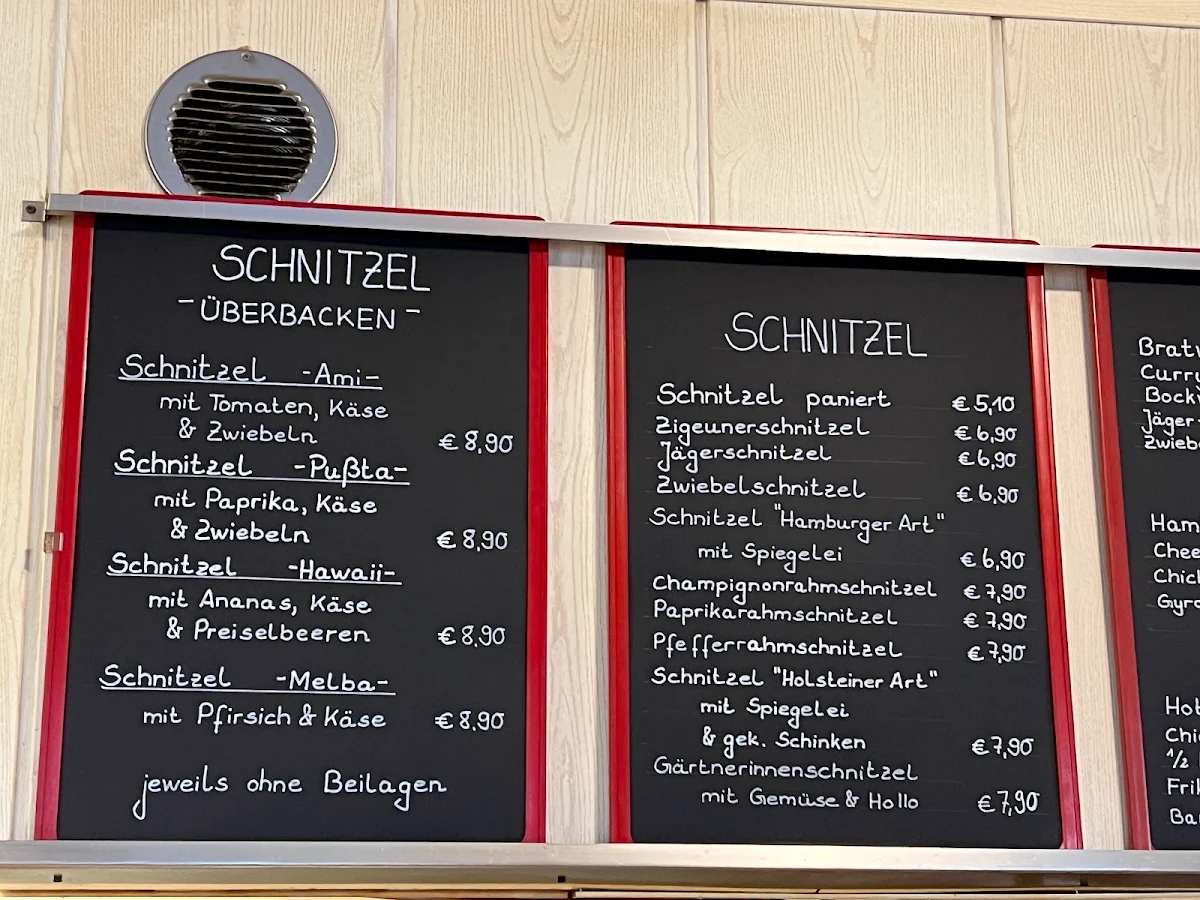 SCHNITZEL
-ÜBERBACKEN-
Schnitzel -Ami-
mit Tomaten, Käse
& Zwiebeln € 8,90
Schnitzel -Pußta-
mit Paprika, Käse
& Zwiebeln € 8,90
Schnitzel -Hawaii-
mit Ananas, Käse
& Preiselbeeren € 8,90
Schnitzel -Melba-
mit Pfirsich & Käse € 8,90
jeweils ohne Beilagen
SCHNITZEL
Schnitzel paniert € 5,10
Zigeunerschnitzel € 6,90
Jägerschnitzel € 6,90
Zwiebelschnitzel € 6,90
Schnitzel "Hamburger Art"
mit Spiegelei € 6,90
Champignonrahmschnitzel € 7,90
Paprikarahmschnitzel € 7,90
Pfefferrahmschnitzel € 7,90
Schnitzel "Holsteiner Art"
mit Spiegelei
& gek. Schinken € 7,90
Gärtnerinnenschnitzel
mit Gemüse & Hollo € 7,90
1/2